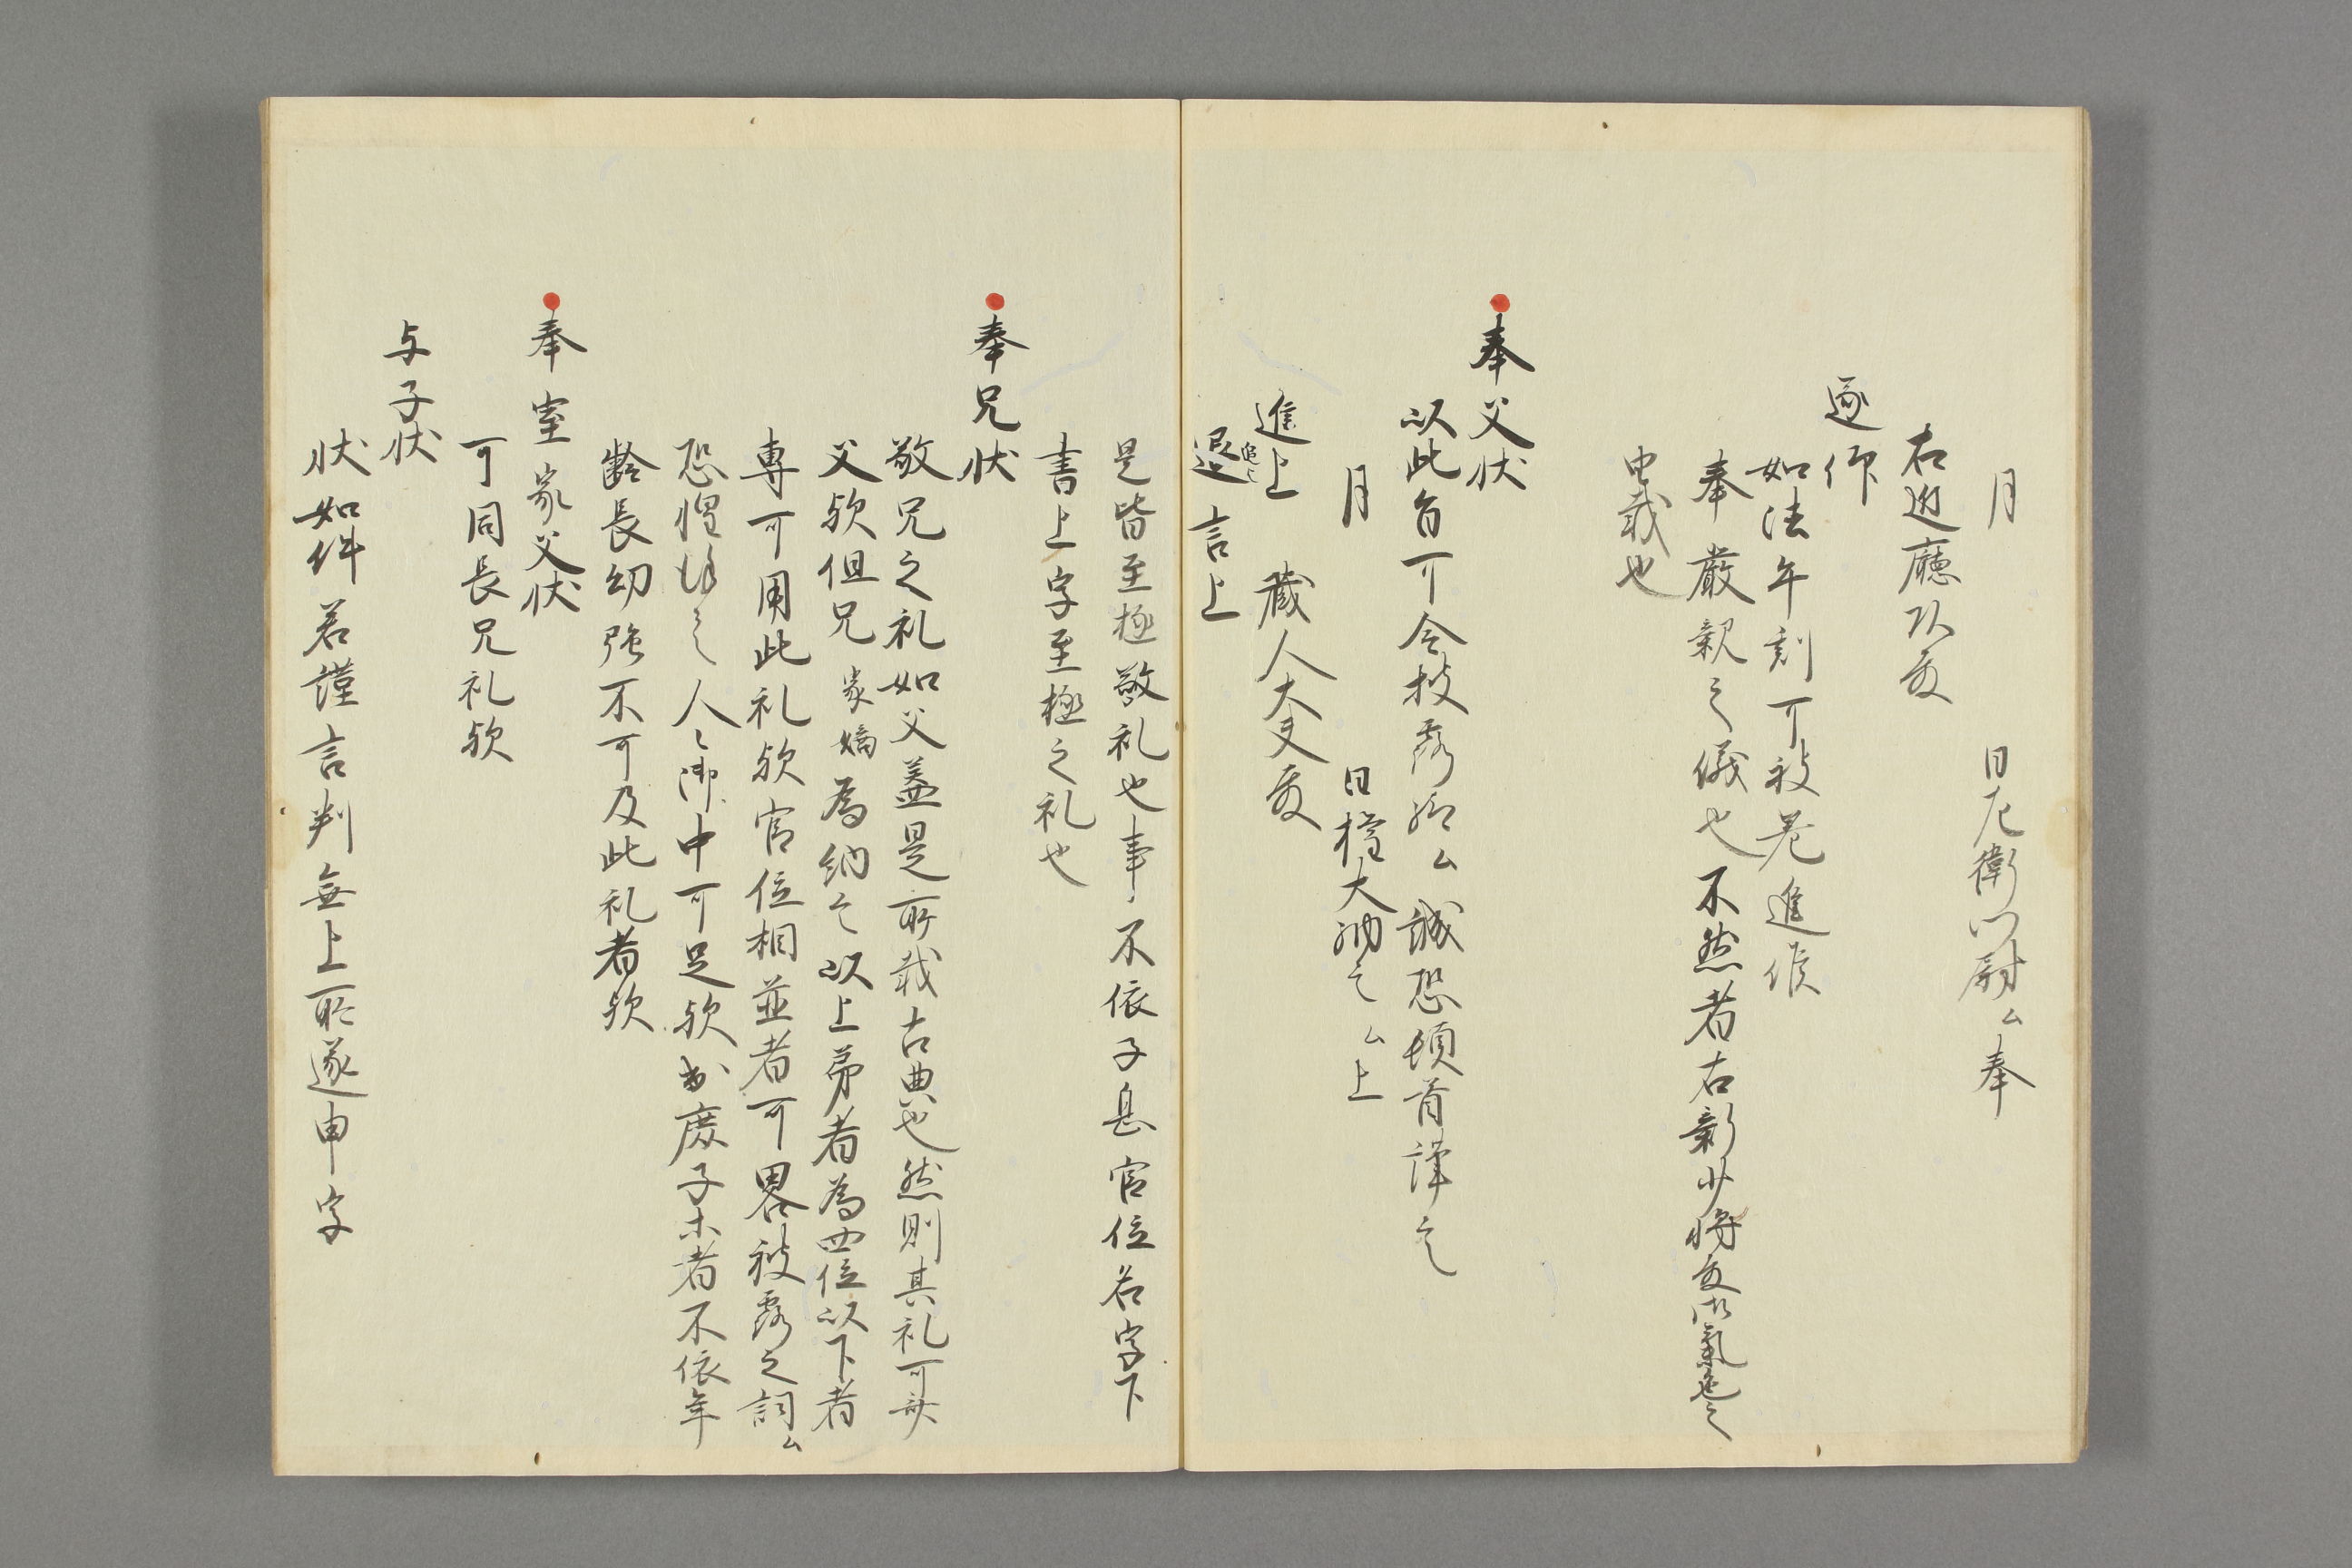 月　　日左衛門尉ム奉
右近廳以友
逐仰
如法午剋可被参進候
奉嚴親之儀也不然者右新少将友御氣色之
由載也
奉父状
以此旨可令披露給ム誠恐頓首謹言
月　　日権大納言ム上
進上　蔵人大夫殿
追上
退言上
是皆至極敬礼也事不依子息官位名字下
書上字至極之礼也
奉兄状
敬兄之礼如父蓋是所載古典也然則其礼可准
父歟但兄家嫡為納言以上弟者為四位以下者
専可用此礼歟官位相並者可畧被露之詞ム
恐惶謹言人々御中可足歟於庶子木者不依年
齢長幼強不可及此礼者歟
奉室家父状
可同長兄礼歟
与子状
状如件若謹言判無上所遂申字